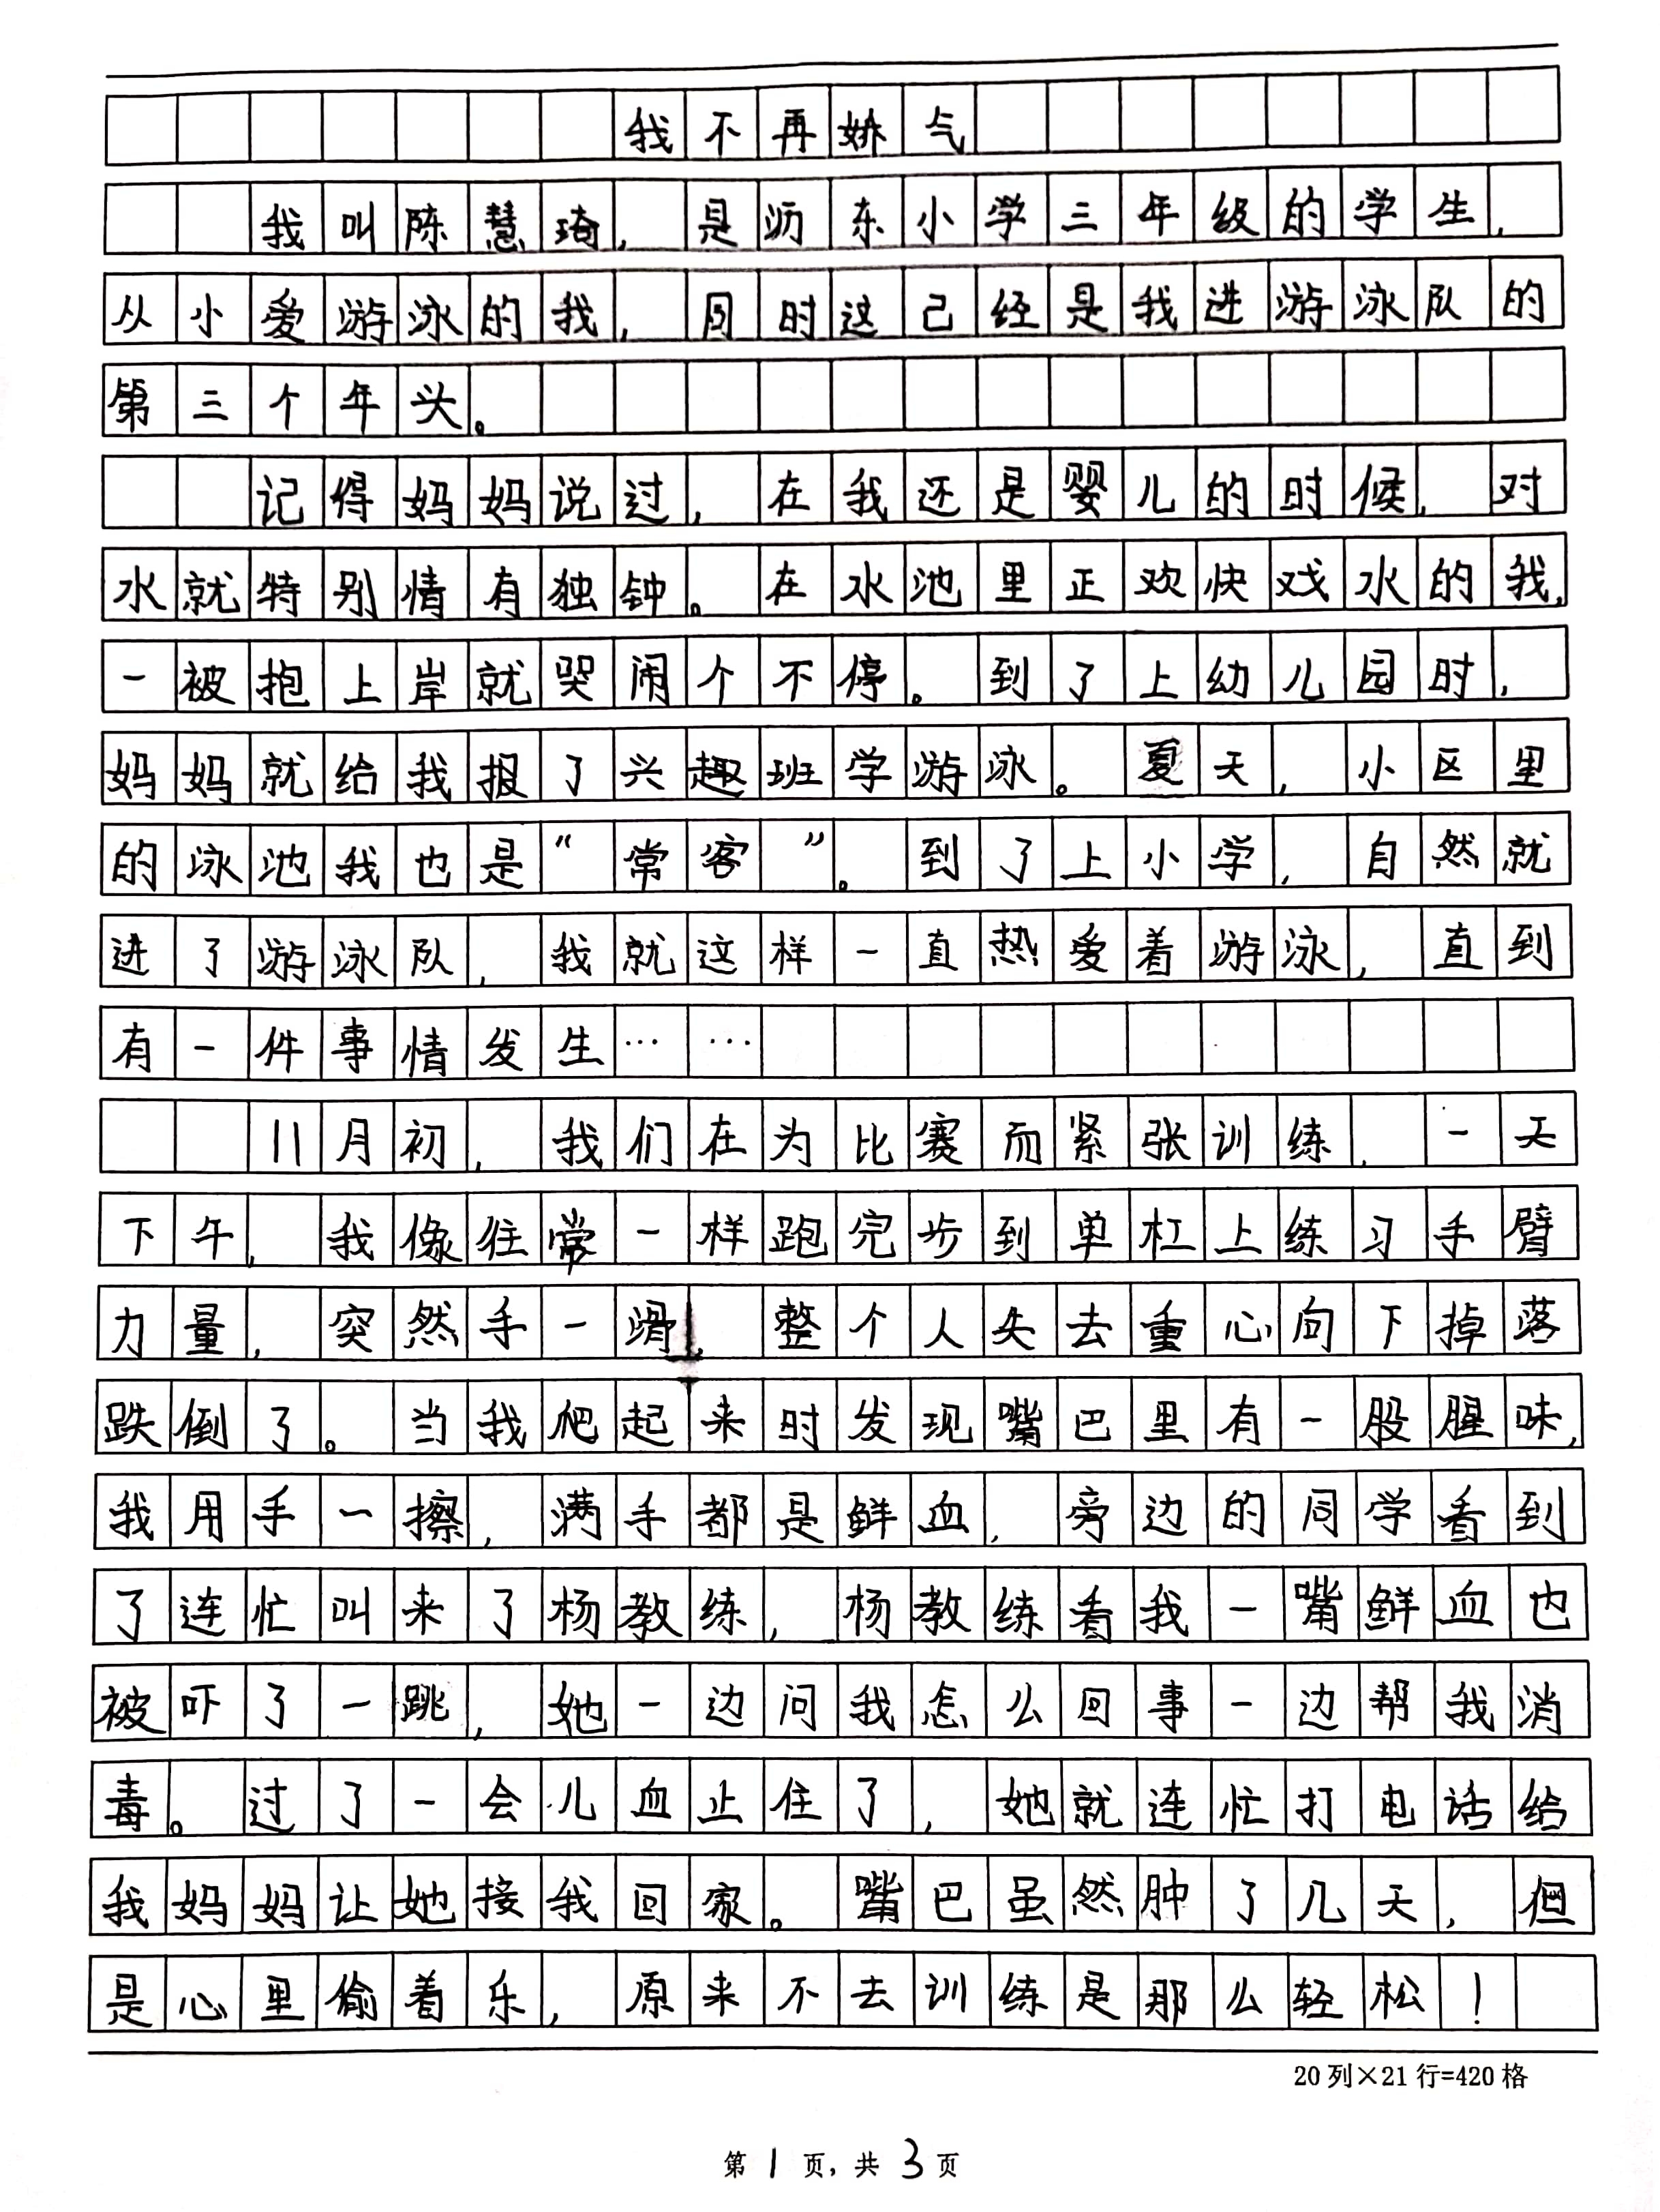 我不再娇气
我叫陈慧琦，是沥东小学三年级的学生，
从小爱游泳的我，同时这己经是我进游泳队的
第三个年头。
记得妈妈说过，在我还是婴儿的时候，对
水就特别情有独钟。在水池里正欢快戏水的我，
一被抱上岸就哭闹个不停。到了上幼儿园时，
妈妈就给我报了兴趣班学游泳。夏天，小区里
的泳池我也是“常客”。到了上小学，自然就
进了游泳队，我就这样一直热爱着游泳，直到
有一件事情发生……
11月初，我们在为比赛而紧张训练，一天
下午，我像往常一样跑完步到单杠上练习手臂
力量，突然手一滑，整个人失去重心向下掉落
跌倒了。当我爬起来时发现嘴巴里有一股腥味，
我用手一擦，满手都是鲜血，旁边的同学看到
了连忙叫来了杨教练，杨教练看我一嘴鲜血也
被吓了一跳，她一边问我怎么回事一边帮我消
毒。过了一会儿血止住了，她就连忙打电话给
我妈妈让她接我回家。嘴巴虽然肿了几天，但
是心里偷着乐，原来不去训练是那么轻松！
20列×21行=420格
第1页，共3页